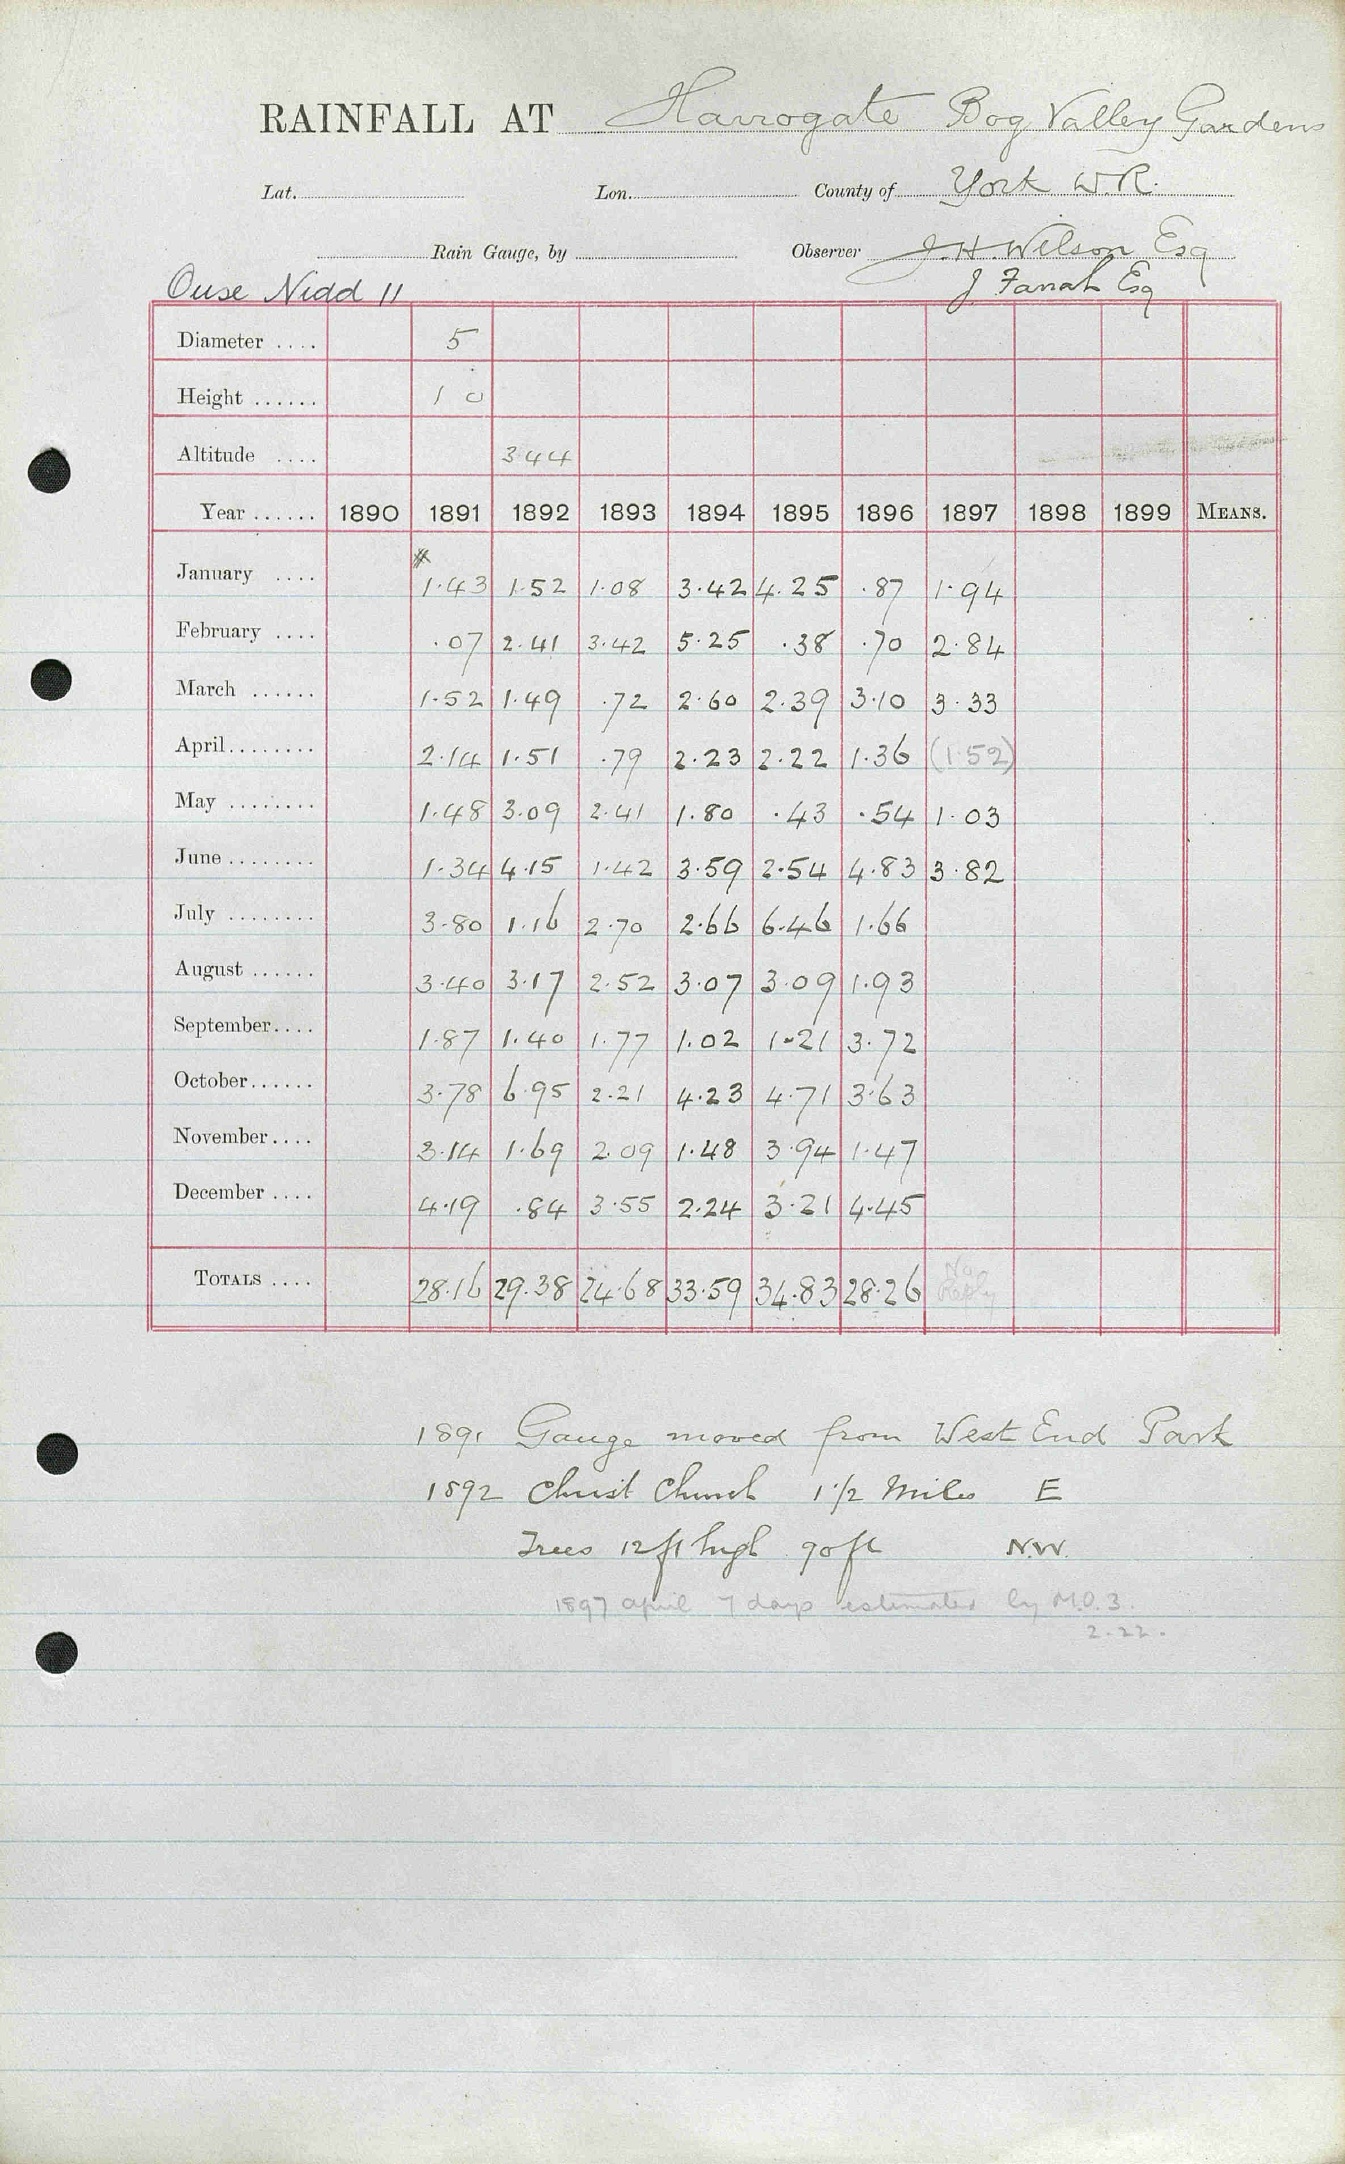 RAINFALL AT Harrogate Bog Valley Gardens
Lat. Lon. County of York W.R.
Rain Gauge, by Observer J.H. Wilson Esq
Ouse Nidd 11 J Farrah Esq
Diameter .... 5
Height ...... 1 0
Altitude .... 344
Year ...... 1890 1891 1892 1893 1894 1895 1896 1897 1898 1899 MEANS.
#
January .... 1.43 1.52 1.08 3.42 4.25 .87 1.94
February .... .07 2.41 3.42 5.25 .38 .70 2.84
March ...... 1.52 1.49 .72 2.60 2.39 3.10 3.33
April........ 2.14 1.51 .79 2.23 2.22 1.36 (1.52)
May ........ 1.48 3.09 2.41 1.80 .43 .54 1.03
June ........ 1.34 4.15 1.42 3.59 2.54 4.83 3.82
July ........ 3.80 1.16 2.70 2.66 6.46 1.66
August ...... 3.40 3.17 2.52 3.07 3.09 1.93
September.... 1.87 1.40 1.77 1.02 1.21 3.72
October...... 3.78 6.95 2.21 4.23 4.71 3.63
November.... 3.14 1.69 2.09 1.48 3.94 1.47
December .... 4.19 .84 3.55 2.24 3.21 4.45
TOTALS .... 28.16 29.38 24.68 33.59 34.83 28.26 No Reply
1891 Gauge moved from West End Park
1892 Christ Church 1 1/2 Miles E
Trees 12 ft high 90 ft N.W.
1897 April 7 days estimated by M.O.3.
2.22.